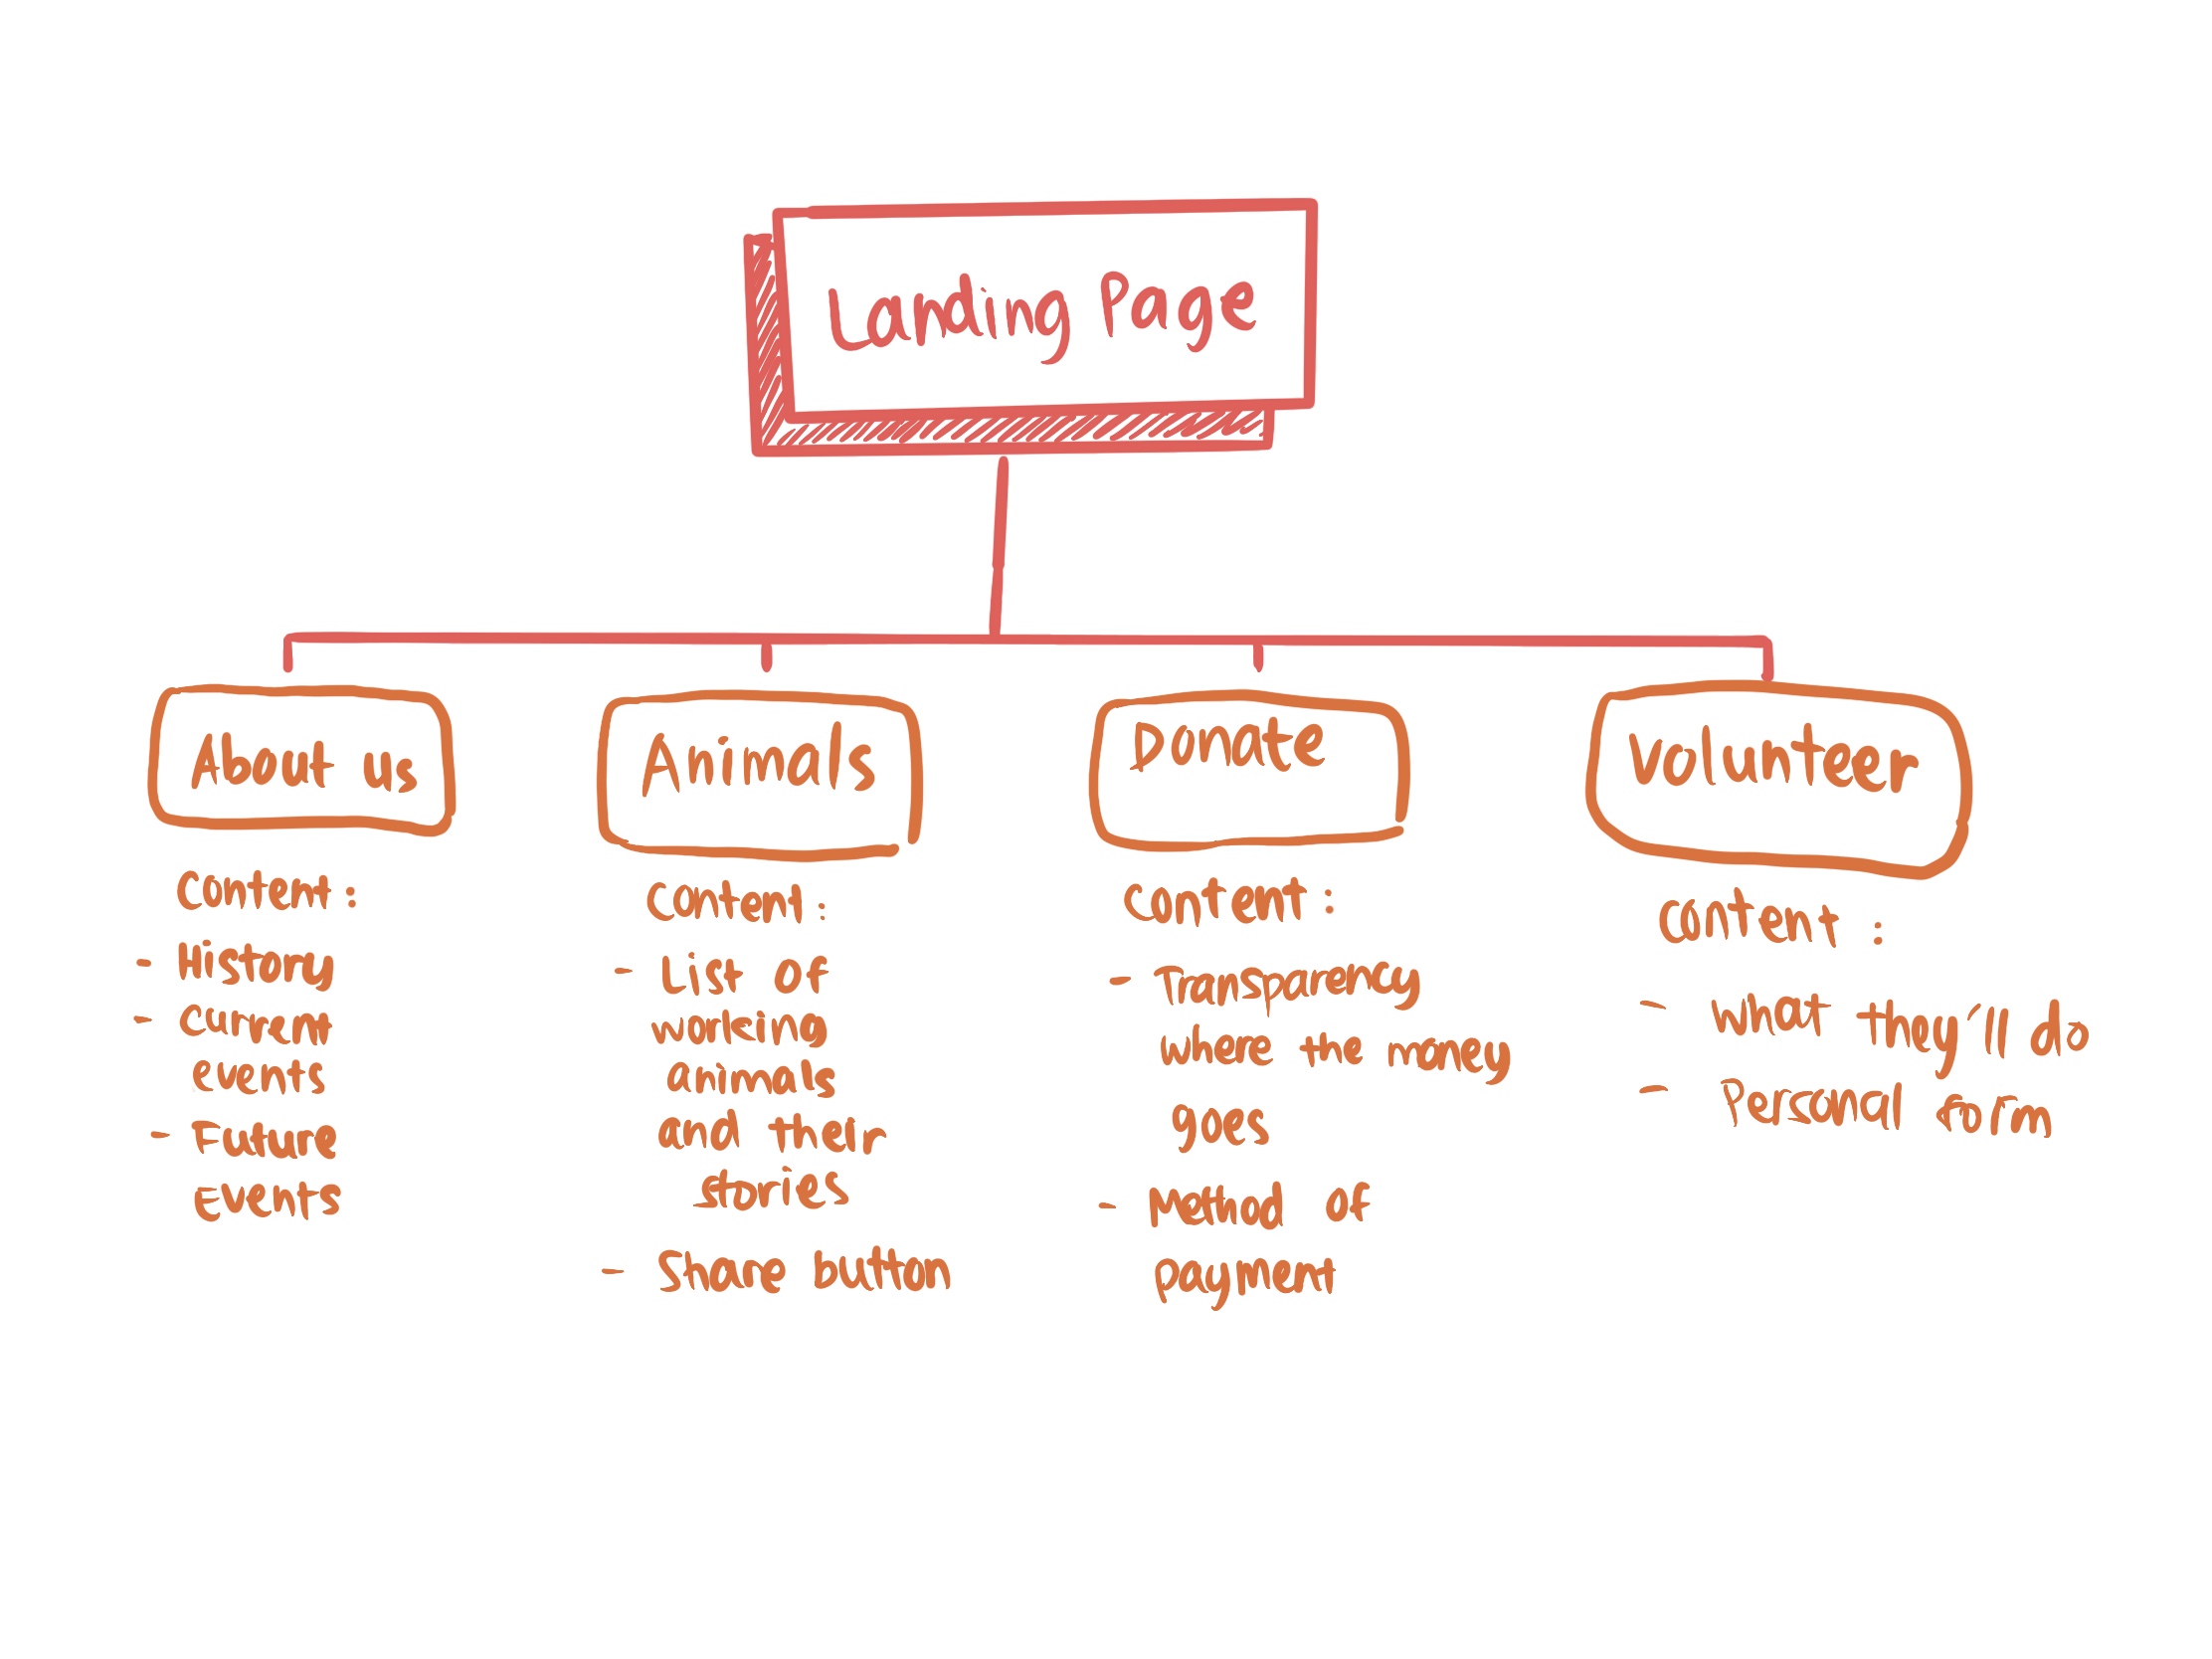 Landing Page
About us
Content:
- History
- Current
events
- Future
Events
Animals
Content:
- List of
working
animals
and their
stories
- Share button
Donate
Content:
- Transparency
where the money
goes
- Method of
payment
Volunteer
Content:
- What they'll do
- Personal form